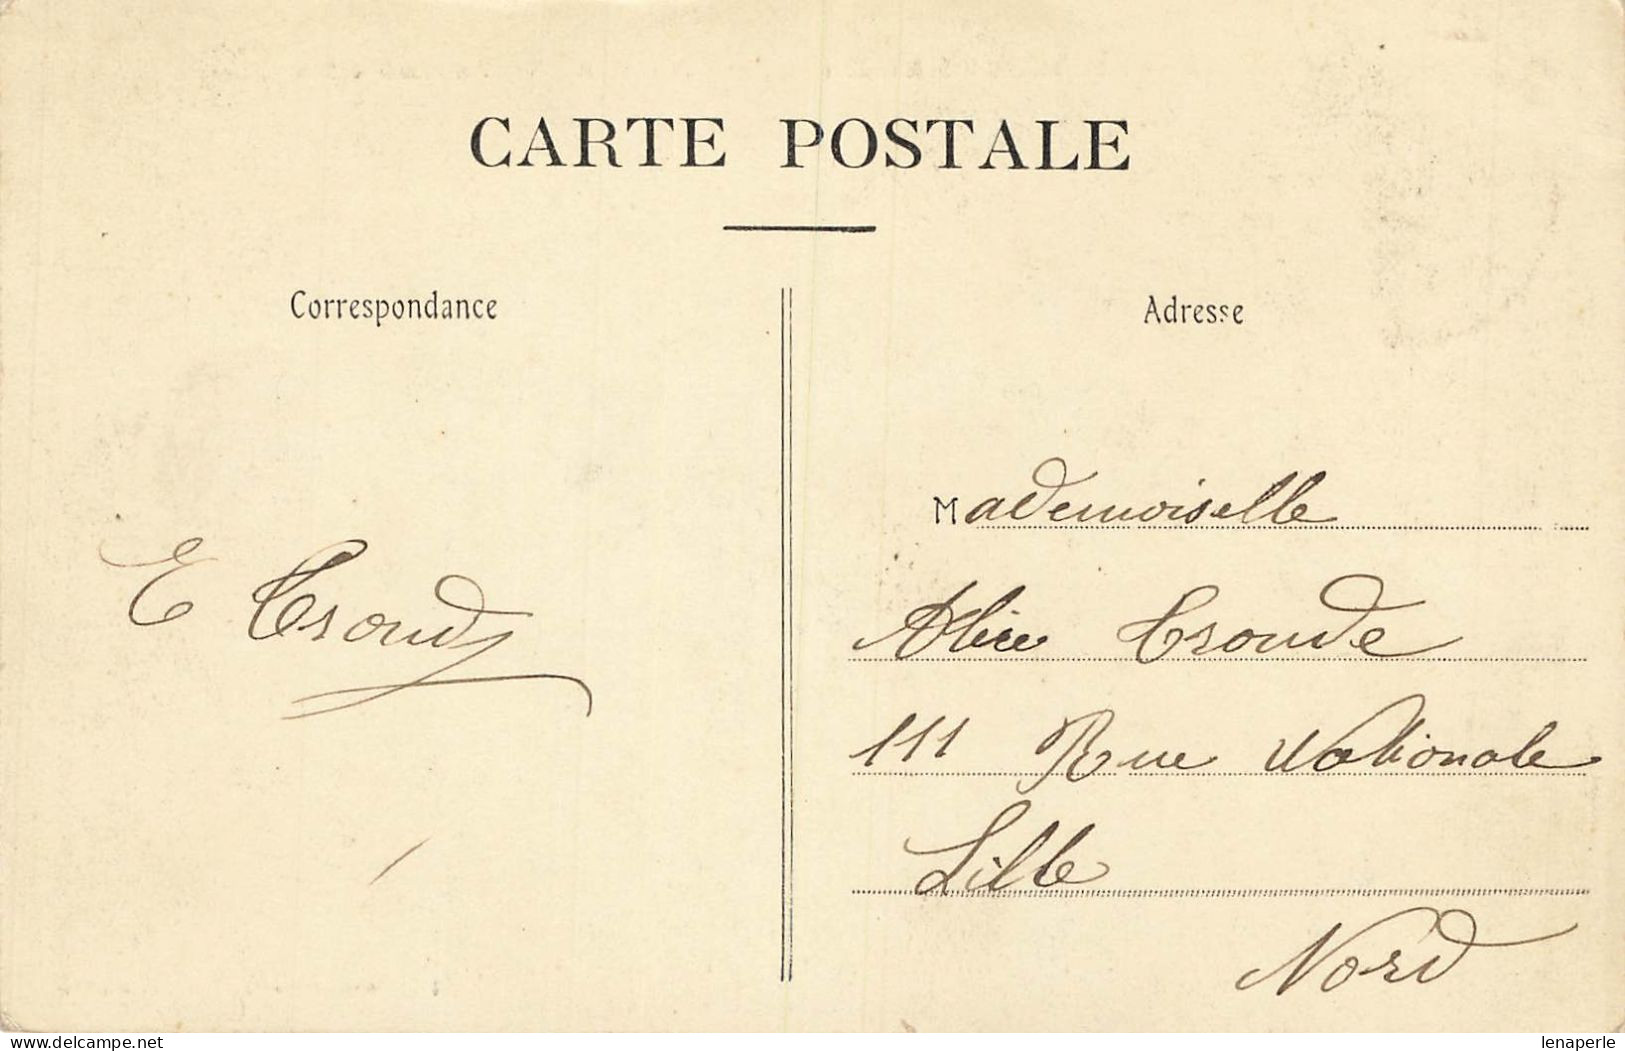 CARTE POSTALE
Correspondance
Adresse
E Troude
Mademoiselle
Alice Troude
111 Rue Nationale
Lille
Nord
www.delcampe.net
lenaperle